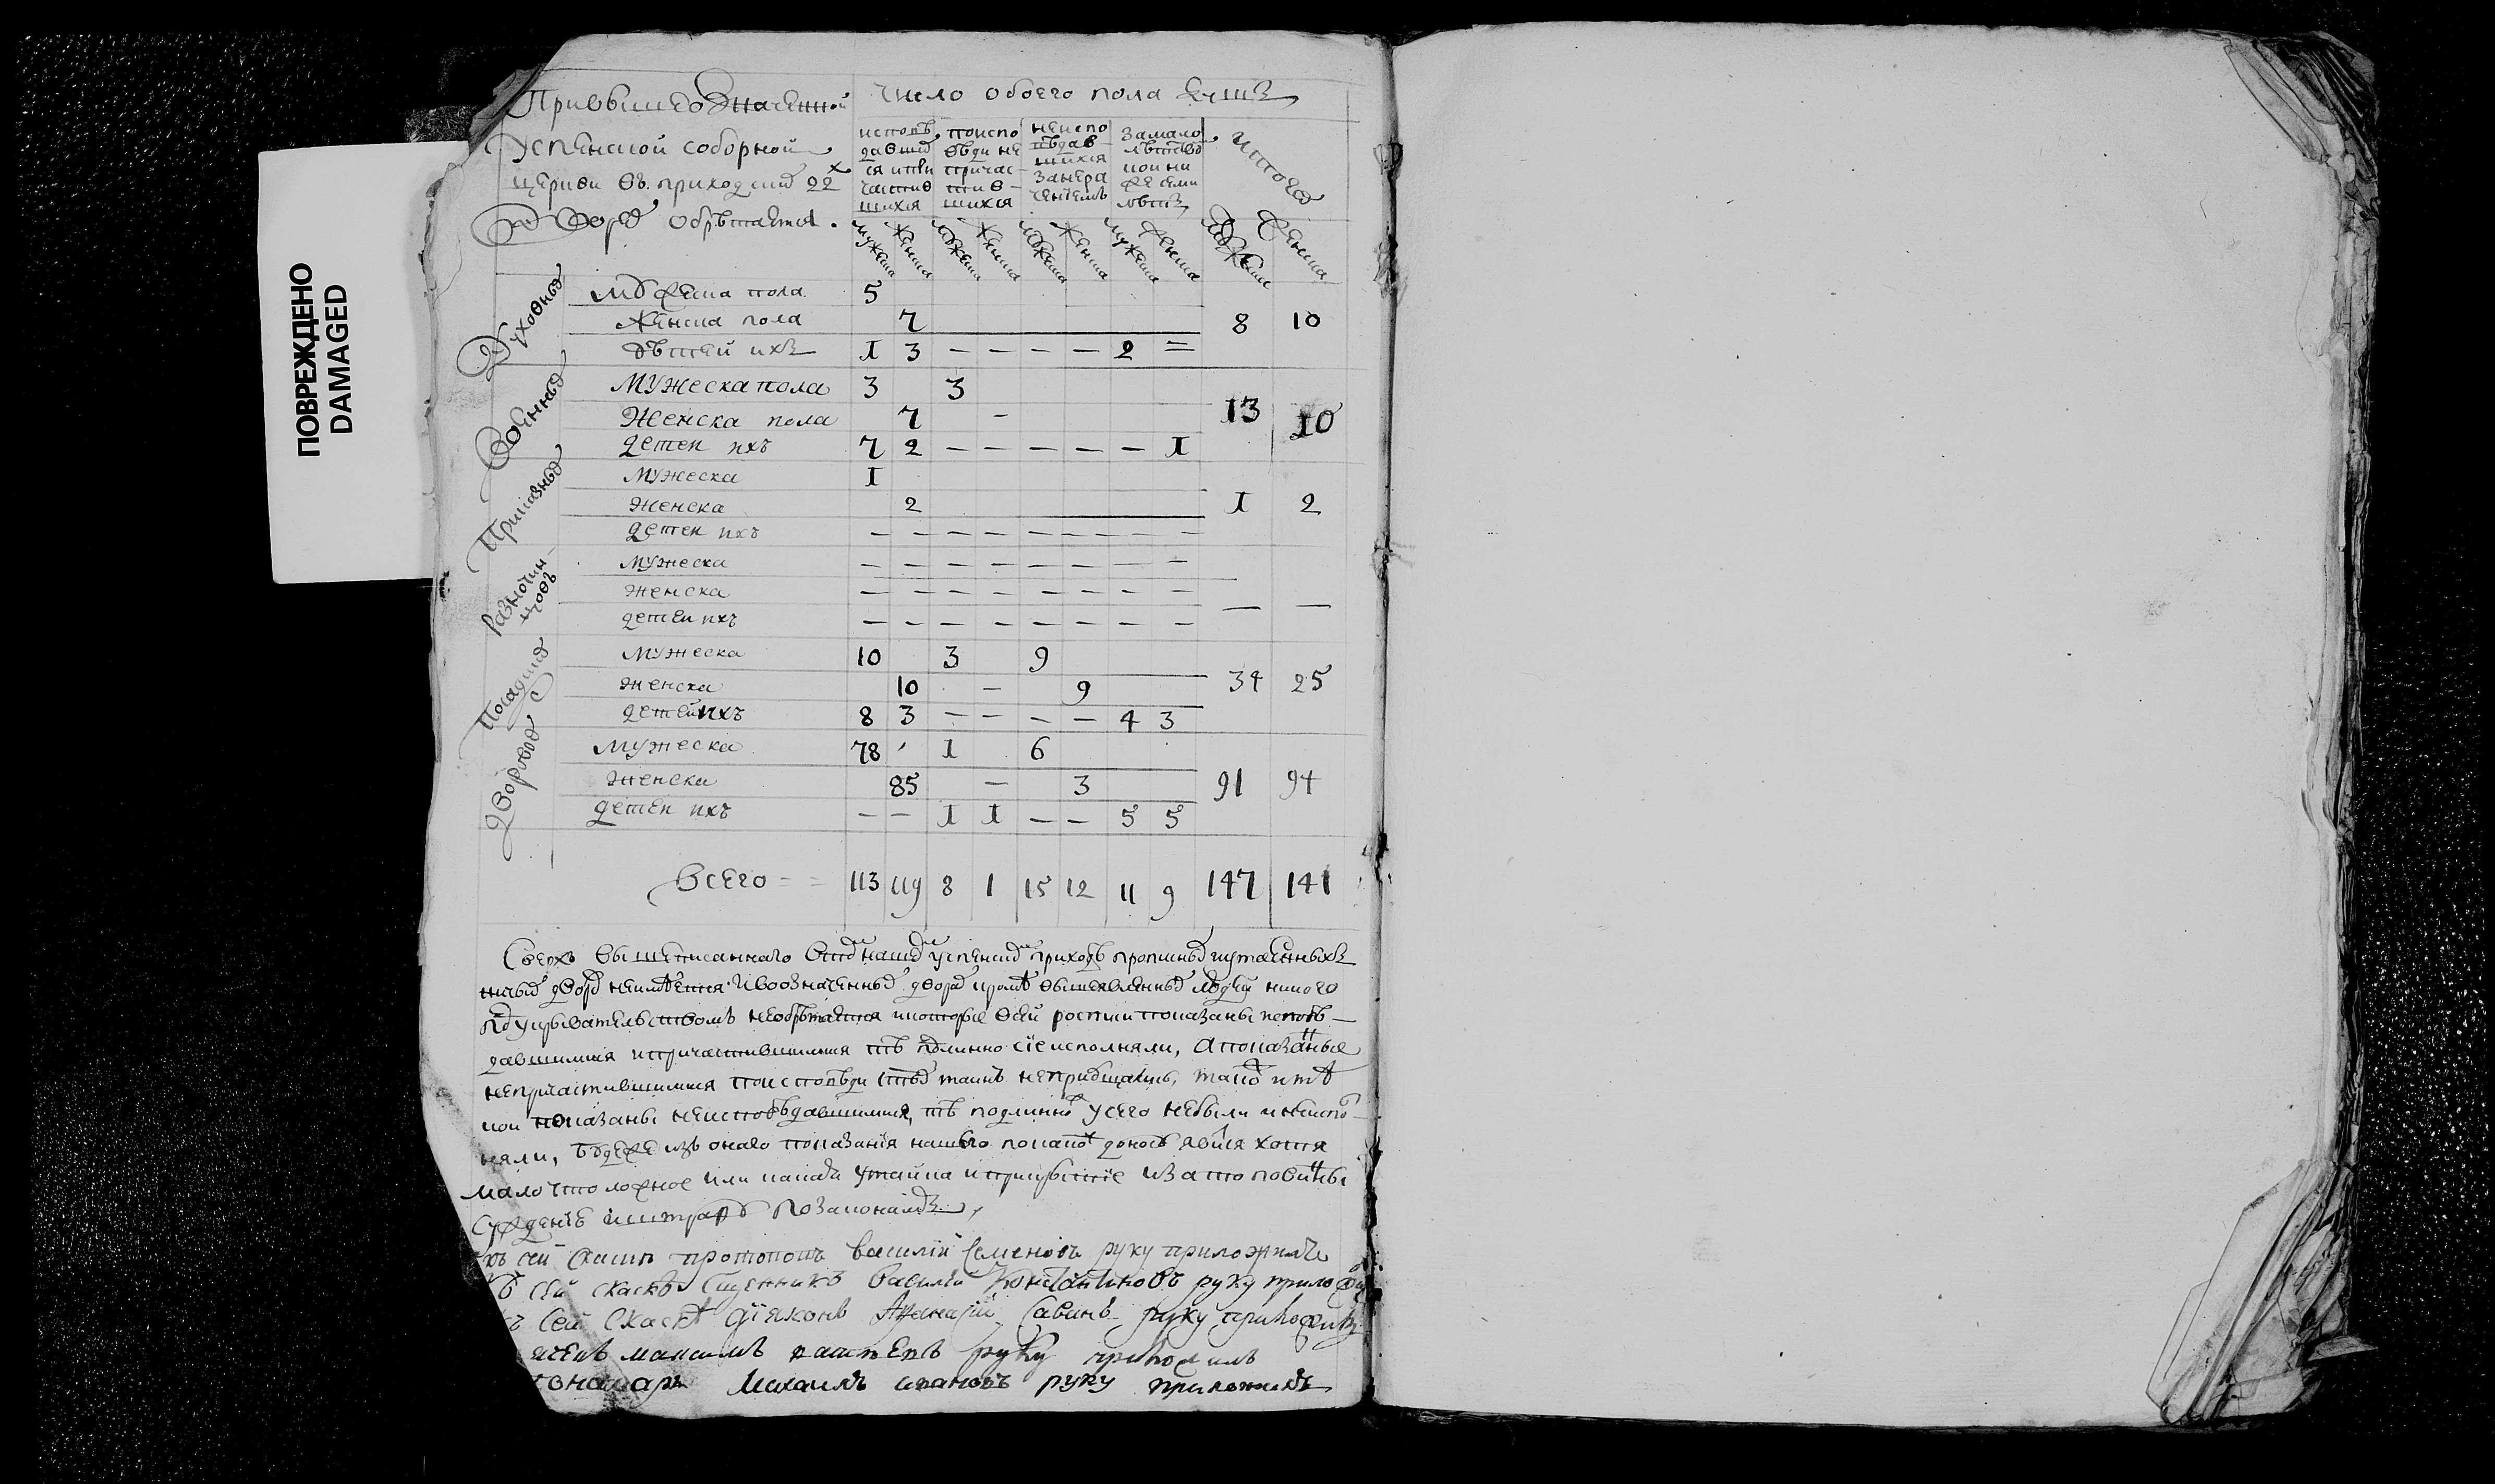 ПОВРЕЖДЕНО
DAMAGED
При вышеозначенной
Успенской соборной
церкви въ приходскихъ 22х
дворехъ обрѣтается.
Число обоего пола душъ
исповѣ
давших
ся и при
частив
шихся
по испо
вѣди не
причас-
тив-
шихся
неиспо
вѣдав-
шихся
за нера
ченїемъ
за мало
лѣтство
кои ни
же семи
лѣтъ
Итого
мужеска женска мужеска женска мужеска женска мужеска женска мужеска женска
Духовных
мужеска пола 5
женска пола 7 8 10
дѣтей ихъ 1 3 — — — — 2 =
Военных
мужеска пола 3 3
женска пола 7 - 13 10
детей ихъ 7 2 — — — — — 1
Приказных
мужеска 1
женска 2 1 2
детей ихъ — — — — — — — —
Разночин-
цовъ
мужеска — — — — — — — —
женска — — — — — — — —
детей ихъ — — — — — — — — — —
Посадских
мужеска 10 3 9
женска 10 — 9 34 25
детей ихъ 8 3 — — — — 4 3
Дворовых
мужеска 78 1 6
женска 85 — 3 91 94
детей ихъ — — 1 1 — — 5 5
Всего = = 113 119 8 1 15 12 11 9 147 141
Сверхъ вышеписаннаго в нашем успенском приходѣ прописных и утаенныхъ
ничьих дворов неимѣется и в означенных дворах кромѣ вышеявленных людей никого
под укрывательствомъ необрѣтается и которые в сей росписи показаны исповѣ-
давшимися и причастившимися тѣ подлинно сїе исполняли, а показанные
непричастившимися по исповѣди святых таинъ неприобщались, також и тѣ
кои показаны неисповѣдавшимися, тѣ подлинно у сего небыли и неиспол-
няли, буде же изъ онаго показанїя нашего по какому доносу явится хотя
мало что ложное или какая утайка и прикрытїе и за то повинны
сужденїю и штрафу по законамъ,
къ сей скаски протопопъ василїй Семеновъ руку приложилъ
къ сей скаскѣ священникъ Василїй Константиновъ руку приложил
къ сей скаскѣ дїяконъ Афанасїй Савинъ руку приложилъ
максимъ руку приложилъ
пономарь Михаилъ ивановъ руку приложилъ